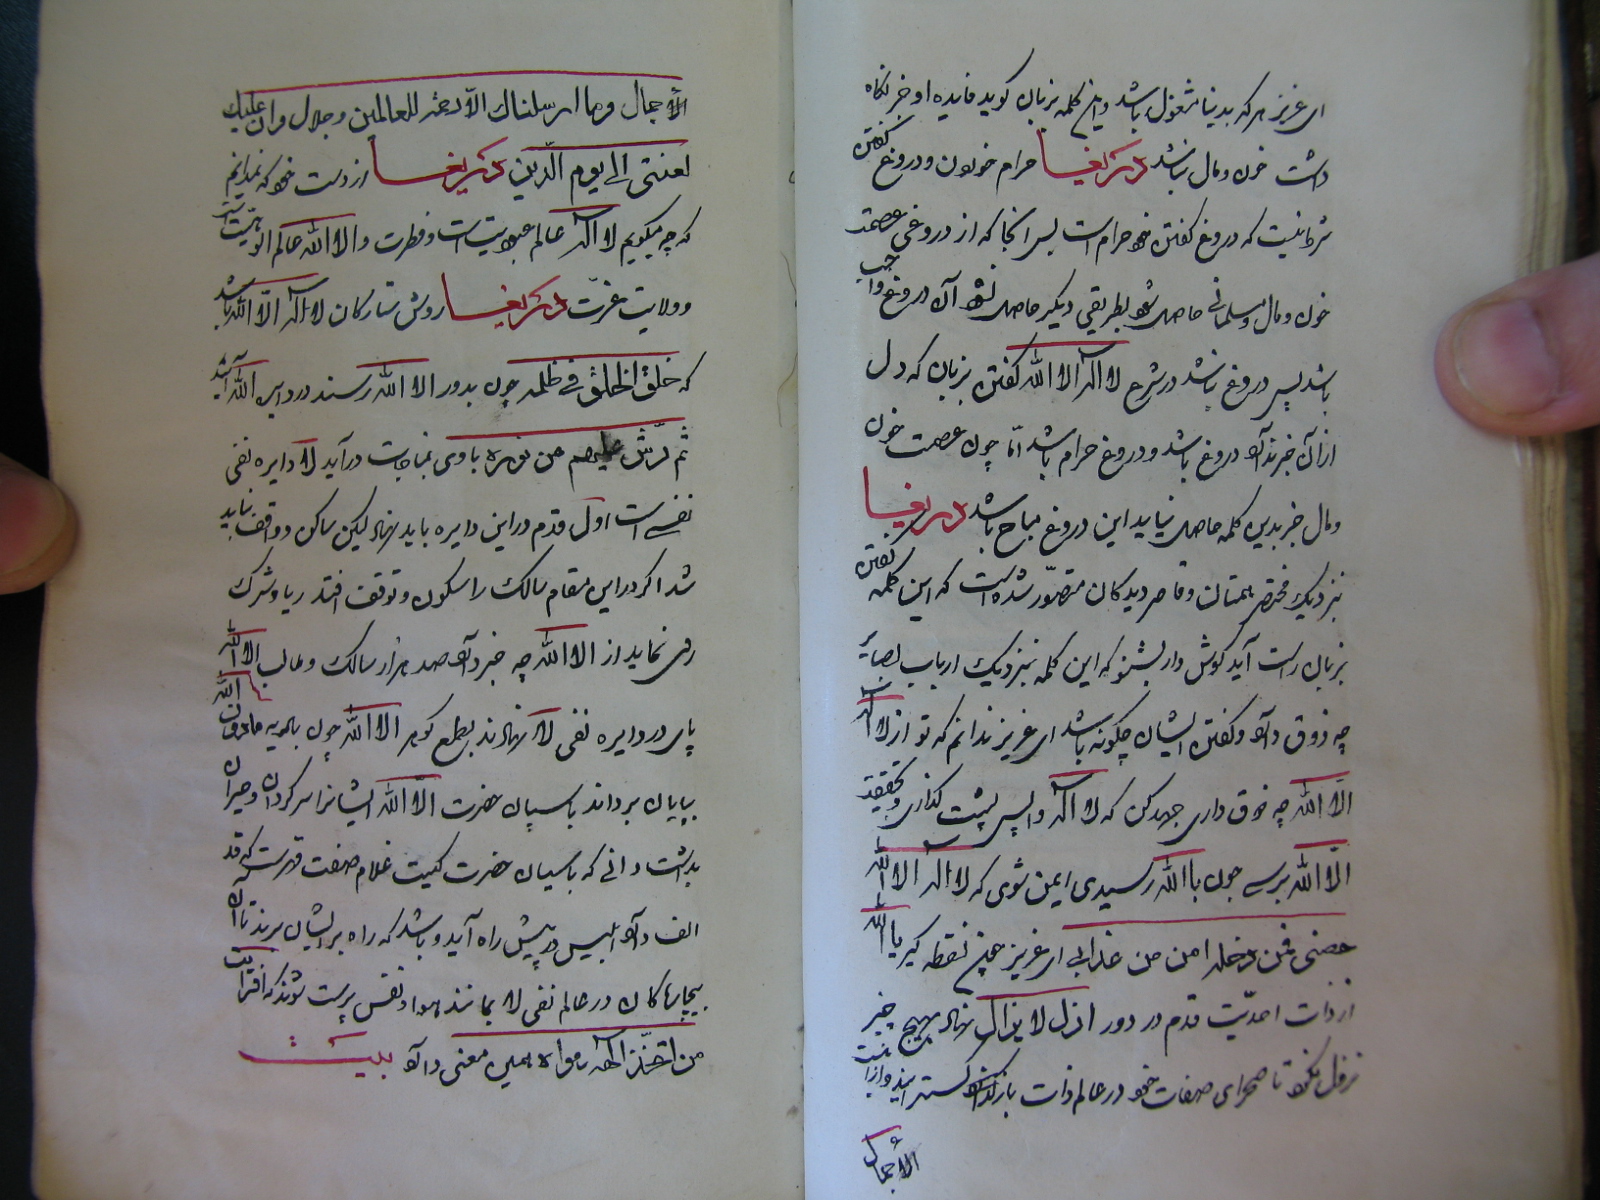 ای عزیز هر که بدنیا مشغول باشد و این کلمه بزبان کوید فایده او جز نکاه
داشت خون و مال نباشد دریغا حرام خوردن و دروغ کفتن
شرط نیست که دروغ کفتن خود حرام است پس انجا که از دروغی عصمت
خون و مال و مسلمانی حاصل شود بطریقی دیکر حاصل نشود آن دروغ واجب
باشد پس دروغ باشد در شرع لا اله الا الله کفتن بزبان که دل
ازان خبر ندارد دروغ باشد و دروغ حرام باشد امّا چون عصمت خون
و مال جز بدین کلمه حاصل نیاید این دروغ مباح باشد دریغا
نزدیک مختصر همتان و قاصر دیدکان متصوّر شده است که این کلمه کفتن
بزبان راست آید کوش دار بشنو که این کلمه نزدیک ارباب بصایر
چه ذوق دارد و کفتن ایشان چکونه باشد ای عزیز ندانم که تو از لا اله
الّا الله چه ذوق داری جهد کن که لا اله واپس پشت کذاری و بحقیقت
الّا الله برسی چون با الله رسیدی ایمن شوی که لا اله الا الله
حصنی فمن دخله امن من عذابی ای عزیز چون نقطه کبریا الله
از ذات احدیّت قدم در دور ازل لا یزال نهاد بهیچ چیز
نزول نکرد تا صحرای صفات خود در عالم ذات بازکسترانید و آن نیست
الا جمال
الا جمال و ما ارسلناك الّا رحمة للعالمین و جلال وان علیك
لعنتی الی یوم الدّین دریغا از دست خود که نمیدانم
که چه میکویم لا اله عالم عبودیت است و فطرت و الا الله عالم الوهیّت
و ولایت عزّت دریغا روش سالکان لا اله الّا الله باشد
که خلق الخلق فی ظلمة چون بدور الا الله رسند در دایره الله آیند
ثم رشّ علیهم من نوره با وی بمناجات درآید لا دایره نفی
نفسی است اول قدم در این دایره باید نهاد لیکن ساکن و واقف نباید
شد اکر در این مقام سالك را سکون و توقف افتد ریا و شرك
روی نماید از الا الله چه خبر دارد صد هزار سالك و طالب الا الله
پای در دایره نفی لا نهادند بطمع کوهر الا الله چون ببادیه ما دون الله
بپایان بردند پاسبان حضرت الّا الله ایشانرا سرکردان و حیران
بداشت دانی که پاسبان حضرت کیست غلام صفت قهرست که قد
الف دارد ابلیس در پیش راه آید و باشد که راه بر ایشان بزند تا آن
بیچارکان در عالم نفی لا بمانند هوا و نفس پرست شوند که افرایت
من اتّخذ الهه هواه همین معنی دارد بیت